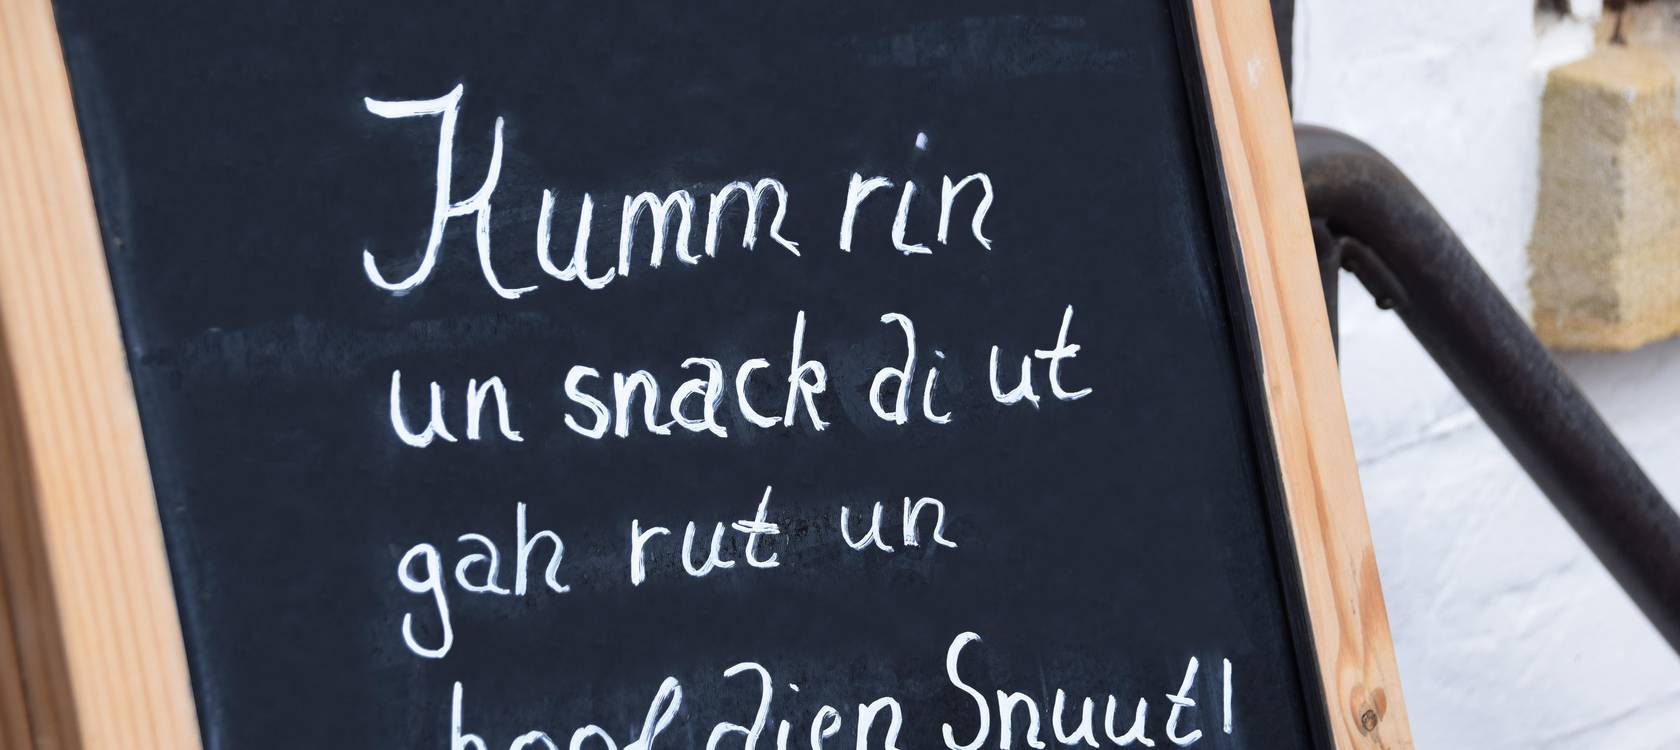 Kumm rin
un snack di ut
gah rut un
hool dien Snuut!